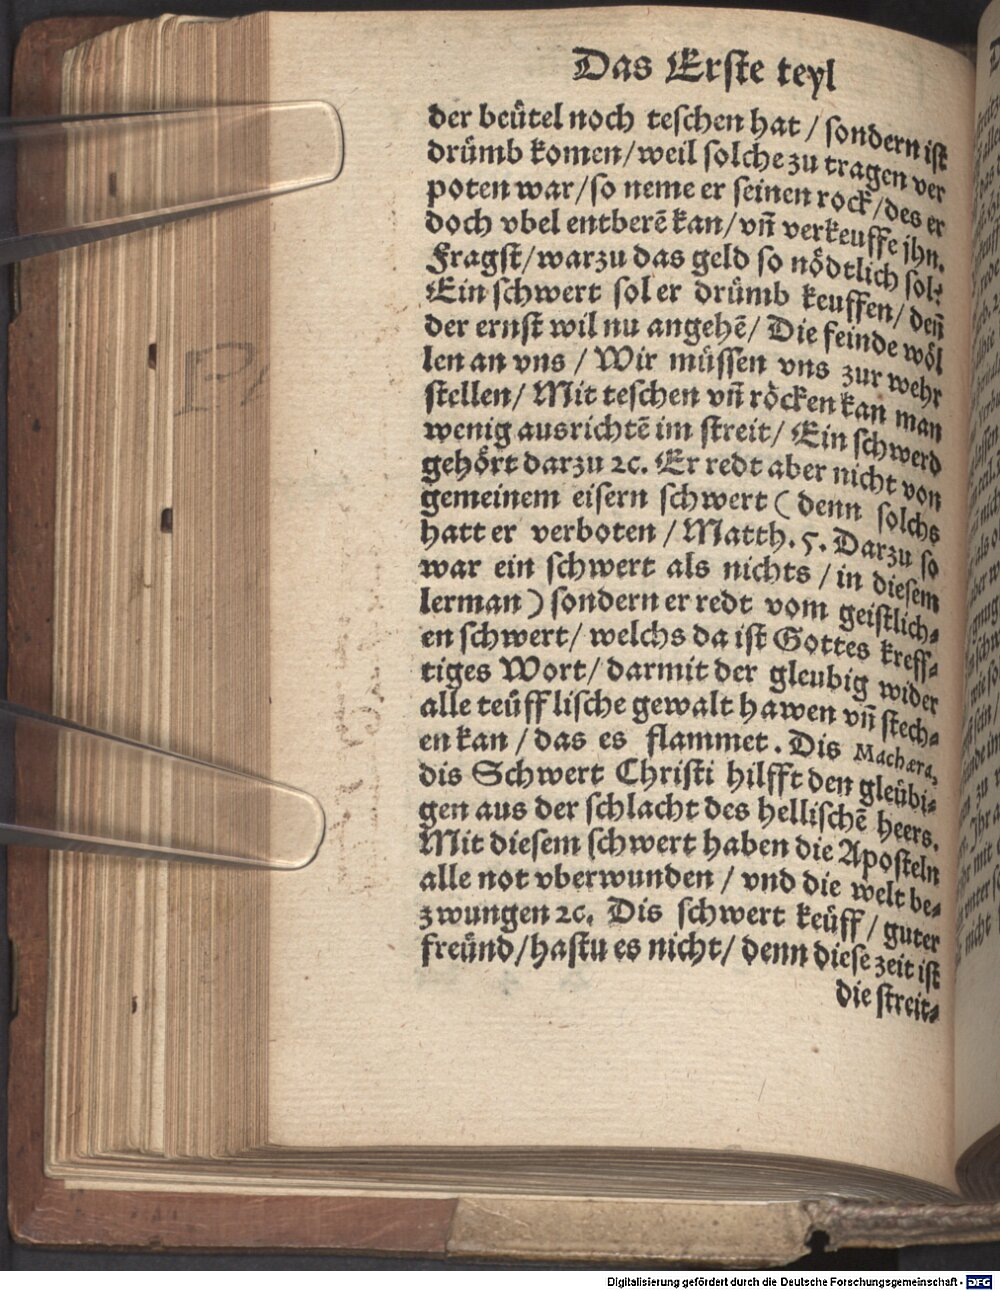 Das Erſte teyl
der beütel noch teſchen hat / ſondern iſt
drümb komen/weil ſolche zu tragen ver
poten war/ſo neme er ſeinen rock/des er
doch vbel entberē kan/vñ verkeuffe jhn.
Fragſt/warzu das geld ſo nödtlich ſol?
Ein ſchwert ſol er drümb keuffen/ deñ
der ernſt wil nu angehē/ Die feinde wöl
len an vns / Wir müſſen vns zur wehr
ſtellen/ Mit teſchen vñ röcken kan man
wenig ausrichtē im ſtreit/ Ein ſchwerd
gehört darzu ꝛc. Er redt aber nicht von
gemeinem eiſern ſchwert ( denn ſolchs
hatt er verboten / Matth. 5. Darzu ſo
war ein ſchwert als nichts / in dieſem
lerman ) ſondern er redt vom geiſtlich⸗
en ſchwert/ welchs da iſt Gottes kreff⸗
tiges Wort/ darmit der gleubig wider
alle teüffliſche gewalt hawen vñ ſtech⸗
en kan / das es flammet. Dis Machæra,
dis Schwert Chriſti hilfft den gleübi⸗
gen aus der ſchlacht des helliſchē heers.
Mit dieſem ſchwert haben die Apoſteln
alle not vberwunden / vnd die welt be⸗
zwungen ꝛc. Dis ſchwert keüff / guter
freünd/haſtu es nicht/ denn dieſe zeit iſt
die ſtreit⸗
Digitalisierung gefördert durch die Deutsche Forschungsgemeinschaft - DFG